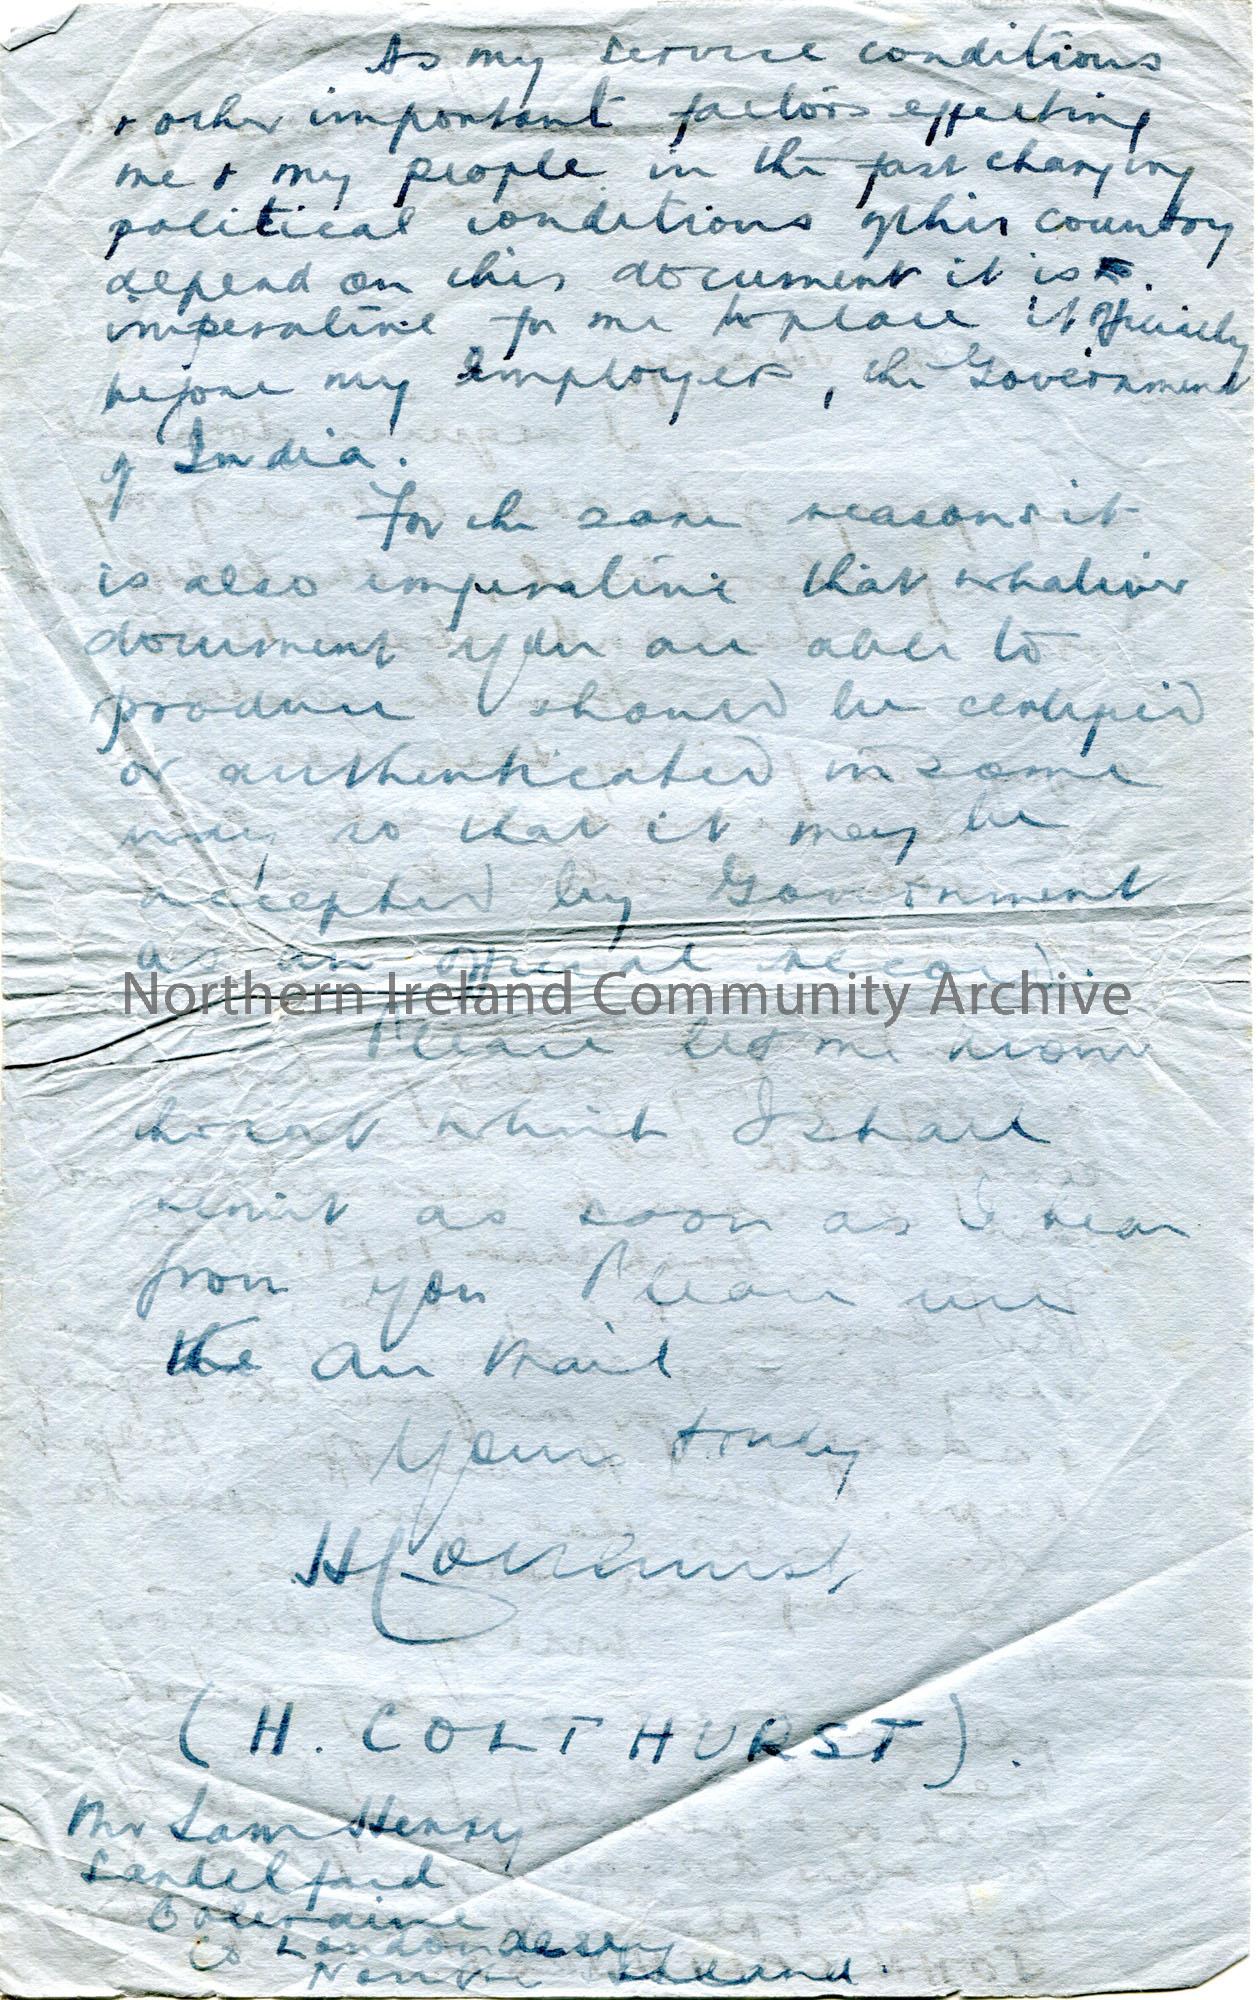 As my service conditions
& other important factors effecting
me & my people in the fast changing
political conditions of this country
depend on this document it is
imperative for me to place it officially
before my Employers, the Government
of India.
For the same reasons it
is also imperative that whatever
document you are able to
produce should be certified
or authenticated in some
way so that it may be
accepted by Government
as an official record.
Northern Ireland Community Archive
Please let me know
the cost which I shall
remit as soon as I hear
from you Please use
the Air Mail
Yours truly
H Colthurst
(H. COLTHURST).
Mr Sam Henry
Sandelford
Coleraine
Co Londonderry
Northern Ireland.